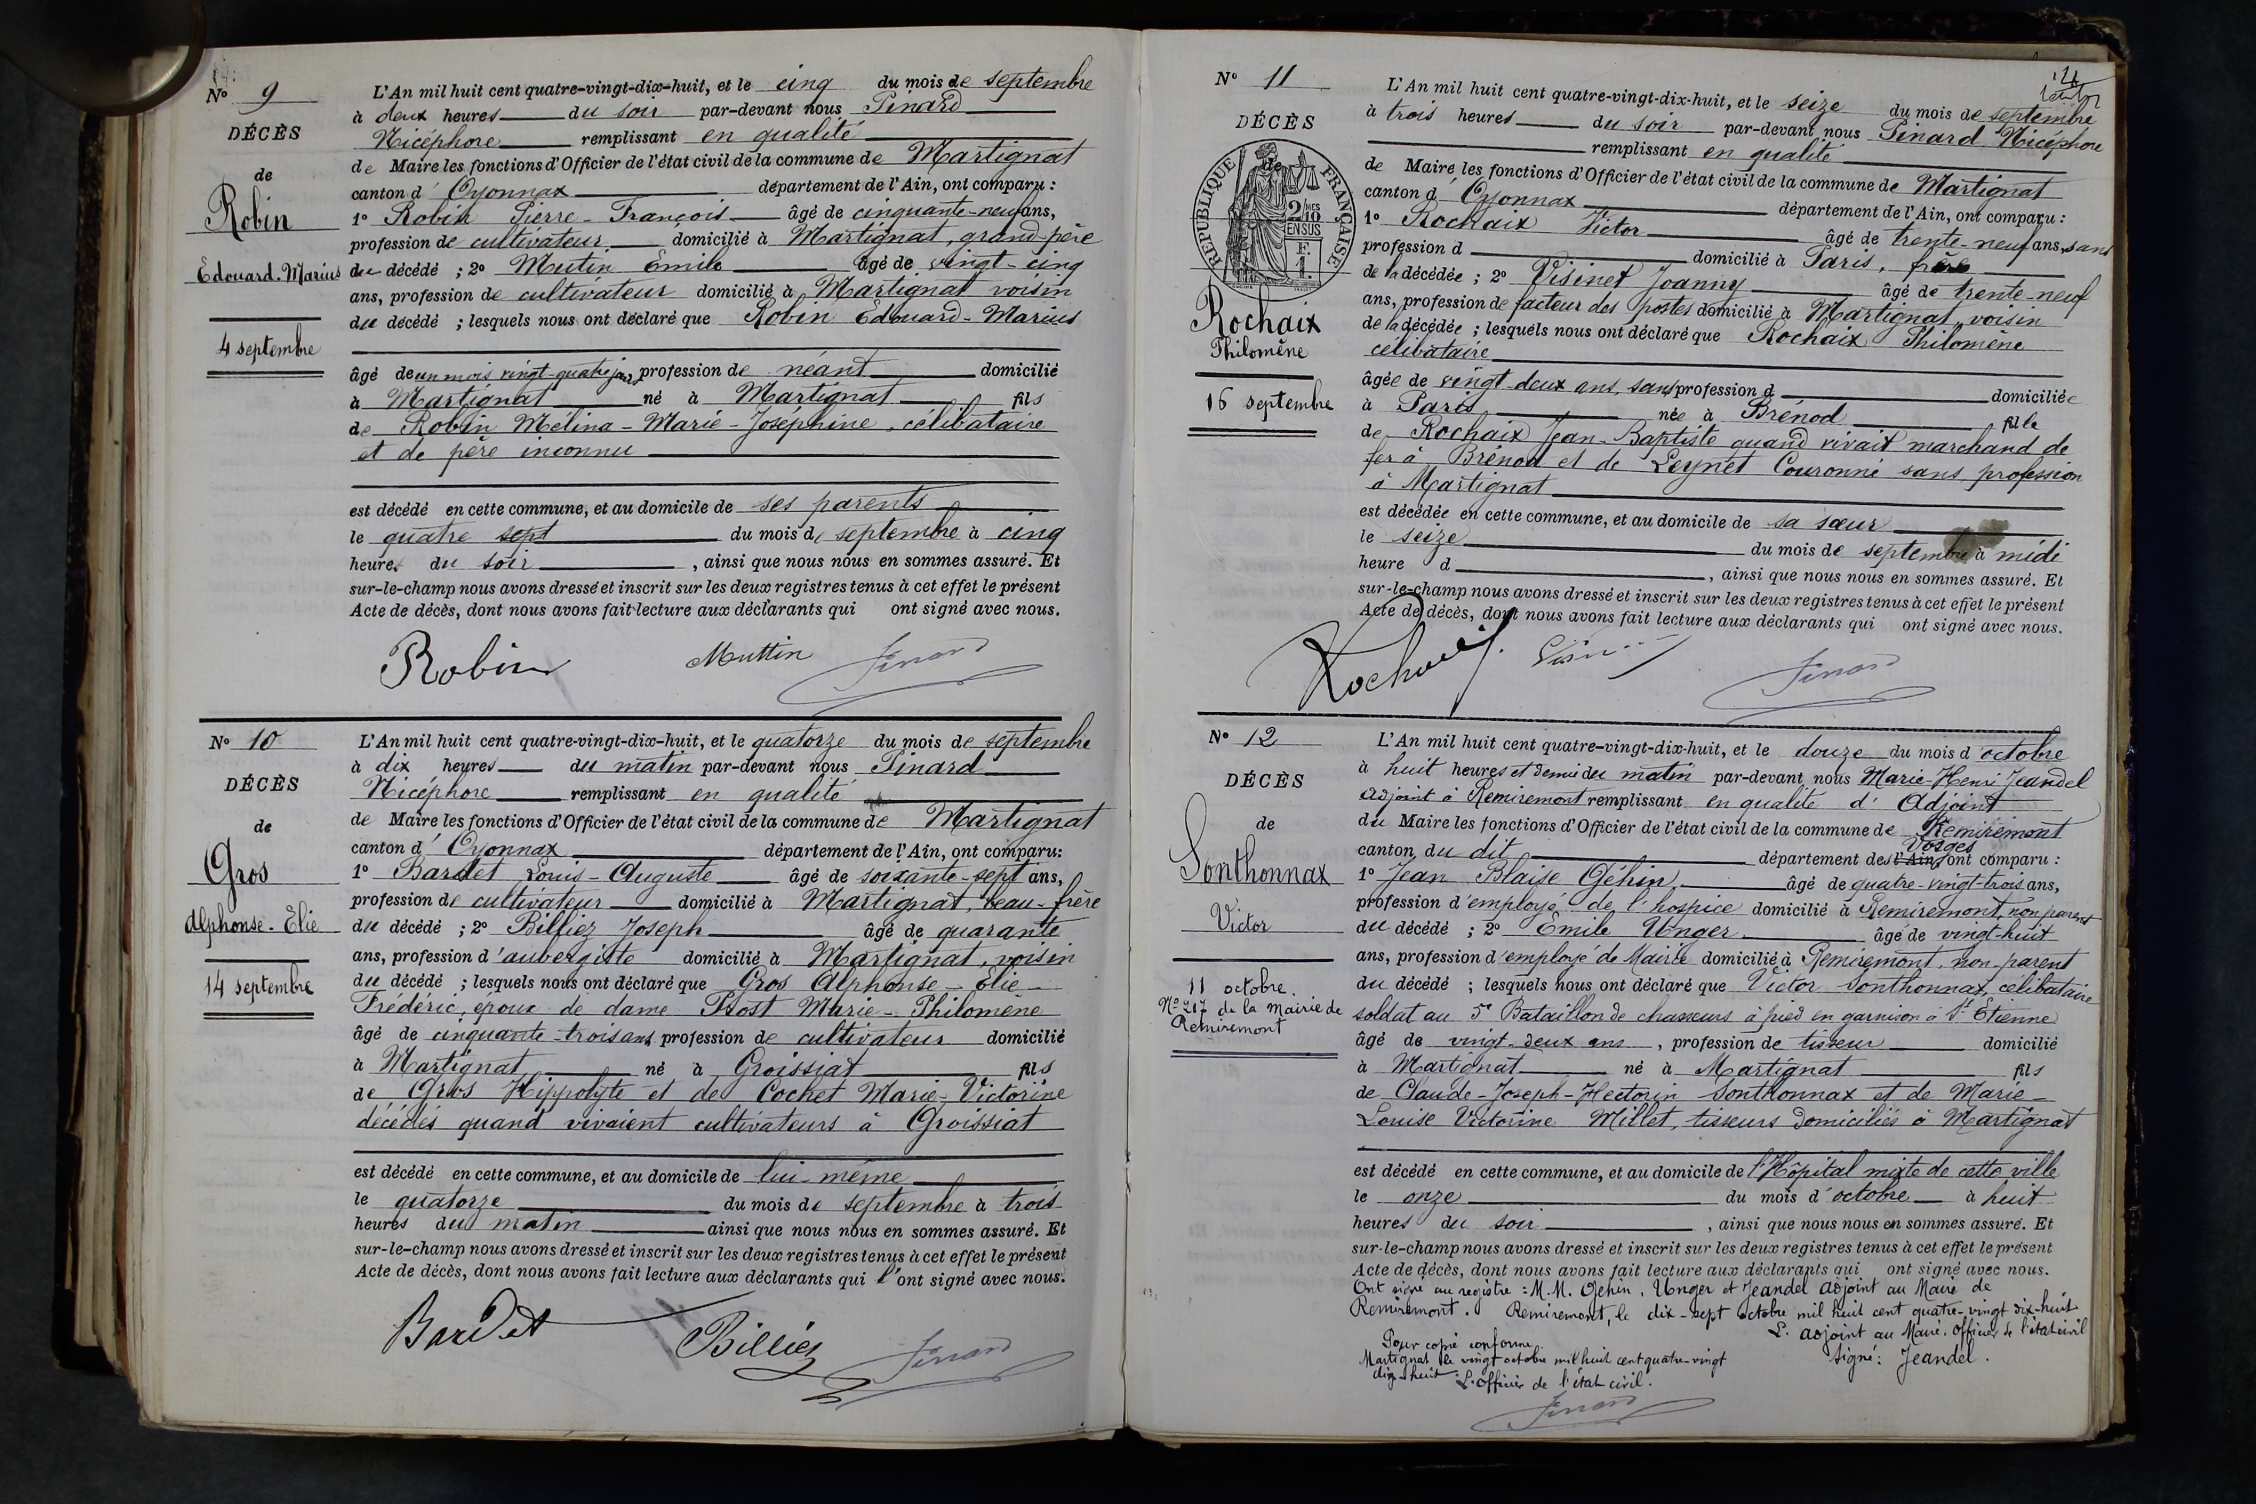 N° 9
DÉCÈS
de
Robin
Edouard-Marius
4 septembre
L'An mil huit cent quatre-vingt-dix-huit, et le cinq du mois de septembre
à deux heures du soir par-devant nous Pinard
Nicéphore remplissant en qualité
de Maire les fonctions d'Officier de l'état civil de la commune de Martignat
canton d'Oyonnax département de l'Ain, ont comparu :
1° Robin Pierre-François âgé de cinquante-neuf ans,
profession de cultivateur domicilié à Martignat, grand père
du décédé ; 2° Mutin Emile âgé de vingt-cinq
ans, profession de cultivateur domicilié à Martignat voisin
du décédé ; lesquels nous ont déclaré que Robin Edouard-Marius
âgé de un mois vingt-quatre jours profession de néant domicilié
à Martignat né à Martignat fils
de Robin Mélina-Marie-Joséphine, célibataire
et de père inconnu
est décédé en cette commune, et au domicile de ses parents
le quatre sept du mois de septembre à cinq
heures du soir, ainsi que nous nous en sommes assuré. Et
sur-le-champ nous avons dressé et inscrit sur les deux registres tenus à cet effet le présent
Acte de décès, dont nous avons fait lecture aux déclarants qui ont signé avec nous.
Robin Muttin Pinard
N° 10
DÉCÈS
de
Gros
Alphonse-Elie
14 septembre
L'An mil huit cent quatre-vingt-dix-huit, et le quatorze du mois de septembre
à dix heures du matin par-devant nous Pinard
Nicéphore remplissant en qualité
de Maire les fonctions d'Officier de l'état civil de la commune de Martignat
canton d'Oyonnax département de l'Ain, ont comparu:
1° Bardet Louis-Auguste âgé de soixante-sept ans,
profession de cultivateur domicilié à Martignat, beau-frère
du décédé ; 2° Billiez Joseph âgé de quarante
ans, profession d'aubergiste domicilié à Martignat, voisin
du décédé ; lesquels nous ont déclaré que Gros Alphonse-Elie-
Frédéric, époux de dame Post Marie-Philomène
âgé de cinquante-trois ans profession de cultivateur domicilié
à Martignat né à Groissiat fils
de Gros Hippolyte et de Cochet Marie-Victorine
décédés quand vivaient cultivateurs à Groissiat
est décédé en cette commune, et au domicile de lui même
le quatorze du mois de septembre à trois
heures du matin ainsi que nous nous en sommes assuré. Et
sur-le-champ nous avons dressé et inscrit sur les deux registres tenus à cet effet le présent
Acte de décès, dont nous avons fait lecture aux déclarants qui l'ont signé avec nous.
Bardet Billiez Pinard
N° 11
DÉCÈS
de
RÉPUBLIQUE FRANÇAISE
2/10 MES
EN SUS
Rochaix
Philomène
16 septembre
L'An mil huit cent quatre-vingt-dix-huit, et le seize du mois de septembre
à trois heures du soir par-devant nous Pinard Nicéphore
remplissant en qualité
de Maire les fonctions d'Officier de l'état civil de la commune de Martignat
canton d'Oyonnax département de l'Ain, ont comparu :
1° Rochaix Victor âgé de trente-neuf ans, sans
profession d domicilié à Paris, frère
de la décédée ; 2° Visinet Joanny âgé de trente-neuf
ans, profession de facteur des postes domicilié à Martignat, voisin
de la décédée ; lesquels nous ont déclaré que Rochaix Philomène
célibataire
âgée de vingt-deux ans, sans profession d domiciliée
à Paris née à Brénod fille
de Rochaix Jean-Baptiste quand vivait marchand de
fer à Brénod et de Leynet Couronne sans profession
à Martignat
est décédée en cette commune, et au domicile de sa sœur
le seize du mois de septembre à midi
heure d, ainsi que nous nous en sommes assuré. Et
sur-le-champ nous avons dressé et inscrit sur les deux registres tenus à cet effet le présent
Acte de décès, dont nous avons fait lecture aux déclarants qui ont signé avec nous.
Rochaix Pinard
N° 12
DÉCÈS
de
Sonthonnax
Victor
11 octobre.
N° 217 de la Mairie de
Remiremont
L'An mil huit cent quatre-vingt-dix-huit, et le douze du mois d'octobre
à huit heures et demie du matin par-devant nous Marie-Henri Jeandel
adjoint à Remiremont remplissant en qualité d'Adjoint
du Maire les fonctions d'Officier de l'état civil de la commune de Remiremont
canton du dit département des l'Ain Vosges, ont comparu :
1° Jean Blaise Géhin, âgé de quatre-vingt-trois ans,
profession d'employé de l'hospice domicilié à Remiremont, non parent
du décédé ; 2° Emile Unger âgé de vingt-huit
ans, profession d'employé de Mairie domicilié à Remiremont, non-parent
du décédé ; lesquels nous ont déclaré que Victor Sonthonnax, célibataire
soldat au 5e Bataillon de chasseurs à pied en garnison à St Etienne
âgé de vingt-deux ans, profession de tisseur domicilié
à Martignat né à Martignat fils
de Claude-Joseph-Hectorin Sonthonnax et de Marie-
Louise Victorine Millet, tisseurs domiciliés à Martignat
est décédé en cette commune, et au domicile de l'Hôpital mixte de cette ville
le onze du mois d'octobre à huit
heures du soir, ainsi que nous nous en sommes assuré. Et
sur-le-champ nous avons dressé et inscrit sur les deux registres tenus à cet effet le présent
Acte de décès, dont nous avons fait lecture aux déclarants qui ont signé avec nous.
Ont signé au registre : M.M. Géhin, Unger et Jeandel adjoint au Maire de
Remiremont. Remiremont, le dix-sept octobre mil huit cent quatre-vingt dix-huit
L'adjoint au Maire. officier de l'état civil
Signé : Jeandel.
Pour copie conforme.
Martignat le vingt octobre mil huit cent quatre-vingt
dix-huit. L'officier de l'état civil.
Pinard